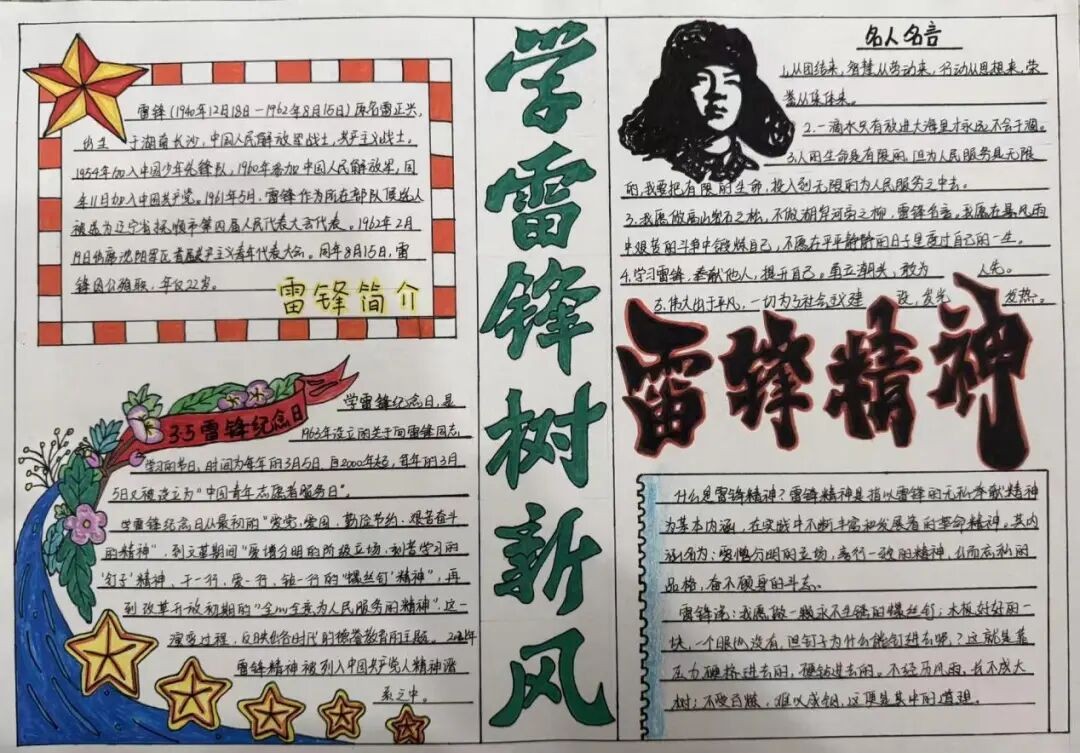 雷锋(1940年12月18日—1962年8月15日)原名雷正兴,
出生于湖南长沙,中国人民解放军战士,共产主义战士。
1954年加入中国少年先锋队,1960年参加中国人民解放军,同
年11月加入中国共产党。1961年5月,雷锋作为所在部队候选人
被选为辽宁省抚顺市第四届人民代表大会代表。1962年2月
19日出席沈阳军区首届共产主义青年代表大会。同年8月15日,雷
锋因公殉职,年仅22岁。
雷锋简介
3·5雷锋纪念日
学雷锋纪念日,是
1963年设立的关于向雷锋同志
学习的节日,时间为每年的3月5日,自2000年起,每年的3月
5日又被设立为“中国青年志愿者服务日”。
学雷锋纪念日从最初的“爱党、爱国、勤俭节约、艰苦奋斗
的精神”,到文革期间“爱憎分明的阶级立场,刻苦学习的
‘钉子’精神,干一行、爱一行、钻一行的“螺丝钉’精神”,再
到改革开放初期的“全心全意为人民服务的精神”,这一
演变过程,反映出各时代的德誉教育的主题。
雷锋精神被列入中国共产党人精神谱
系之中。
学雷锋树新风
名人名言
1.从团结来,智慧从劳动来,行动从思想来,荣
誉从集体来。
2.一滴水只有放进大海里才永远不会干涸。
3.人的生命是有限的,但为人民服务是无限
的,我要把有限的生命,投入到无限的为人民服务之中去。
3.我愿做高山岩石之松,不做湖岸河旁之柳,雷锋名言,我愿在暴风雨
中艰苦的斗争中锻炼自己,不愿在平平静静的日子里度过自己的一生。
4.学习雷锋,奉献他人,提升自己。勇立潮头,敢为 人先。
5.伟大出于平凡,一切为了社会主义建 设,发光 发热。
雷锋精神
什么是雷锋精神?雷锋精神是指以雷锋的无私奉献精神
为基本内涵,在实践中不断丰富和发展着的革命精神。其内
涵为:爱憎分明的立场,言行一致的精神,公而忘私的
品格,奋不顾身的斗志。
雷锋说:我愿做一颗永不生锈的螺丝钉;木板好好的一
块,一个眼也没有,但钉子为什么能钉进去呢?这就是靠
压力硬挤进去的,硬钻进去的。不经历风雨,长不成大
树;不受百炼,难以成钢,这便是其中的道理。